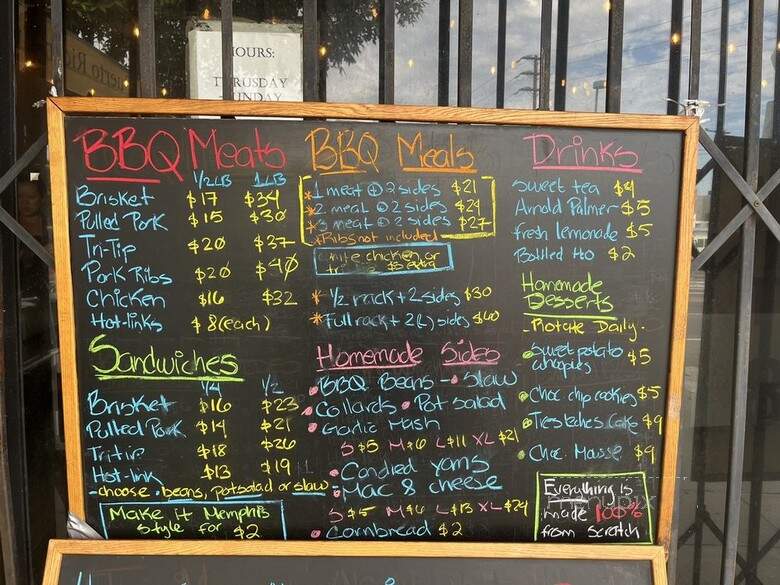 HOURS:
BBQ Meats
1/2 LB 1 LB
Brisket $17 $34
Pulled Pork $15 $30
Tri-Tip $20 $37
Pork Ribs $20 $40
Chicken $16 $32
Hot-links $8 (each)
Sandwiches
1/4 1/2
Brisket $16 $23
Pulled Pork $14 $21
Tri tip $18 $26
Hot-link $13 $19
-choose: beans, potsalad or slaw
Make it Memphis
Style for $2
BBQ Meals
*1 meat + 2 sides $21
*2 meat + 2 sides $24
*3 meat + 2 sides $27
*Ribs not included
chicken or
$3 extra
*1/2 rack + 2 sides $30
*Full rack + 2(L) sides $60
Homemade Sides
•BBQ Beans - •Slaw
•Collards •Pot Salad
•Garlic Mash
S $5 M $6 L $11 XL $21
•Candied yams
•Mac & cheese
S $5 L $13 XL $24
•Cornbread $2
Drinks
Sweet tea $4
Arnold Palmer $5
fresh lemonade $5
Bottled H2O $2
Homemade
Desserts
-Rotate Daily-
•Sweet potato $5
•Choc chip cookies $5
•Tres leches Cake $9
•Choc. Mousse $9
Everything is
made 100%
from scratch